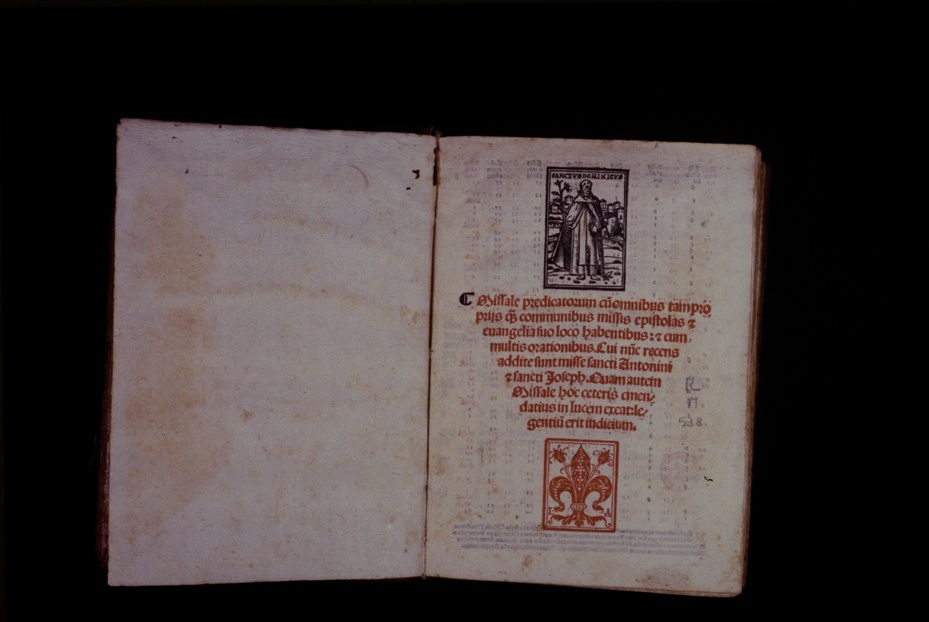 SANCTVS DOMINICVS
C Missale predicatorum cū omnibus tam pro
prijs q̄ȝ communibus missis epistolas ⁊
euangelia suo loco habentibus: ⁊ cum
multis orationibus. Cui nūc recens
addite sunt misse sancti Antonini
⁊ sancti Joseph. Quam autem
Missale hoc ceteris emen⸗
datius in lucem exeat: le⸗
gentiū erit iudicium.
M
538
A